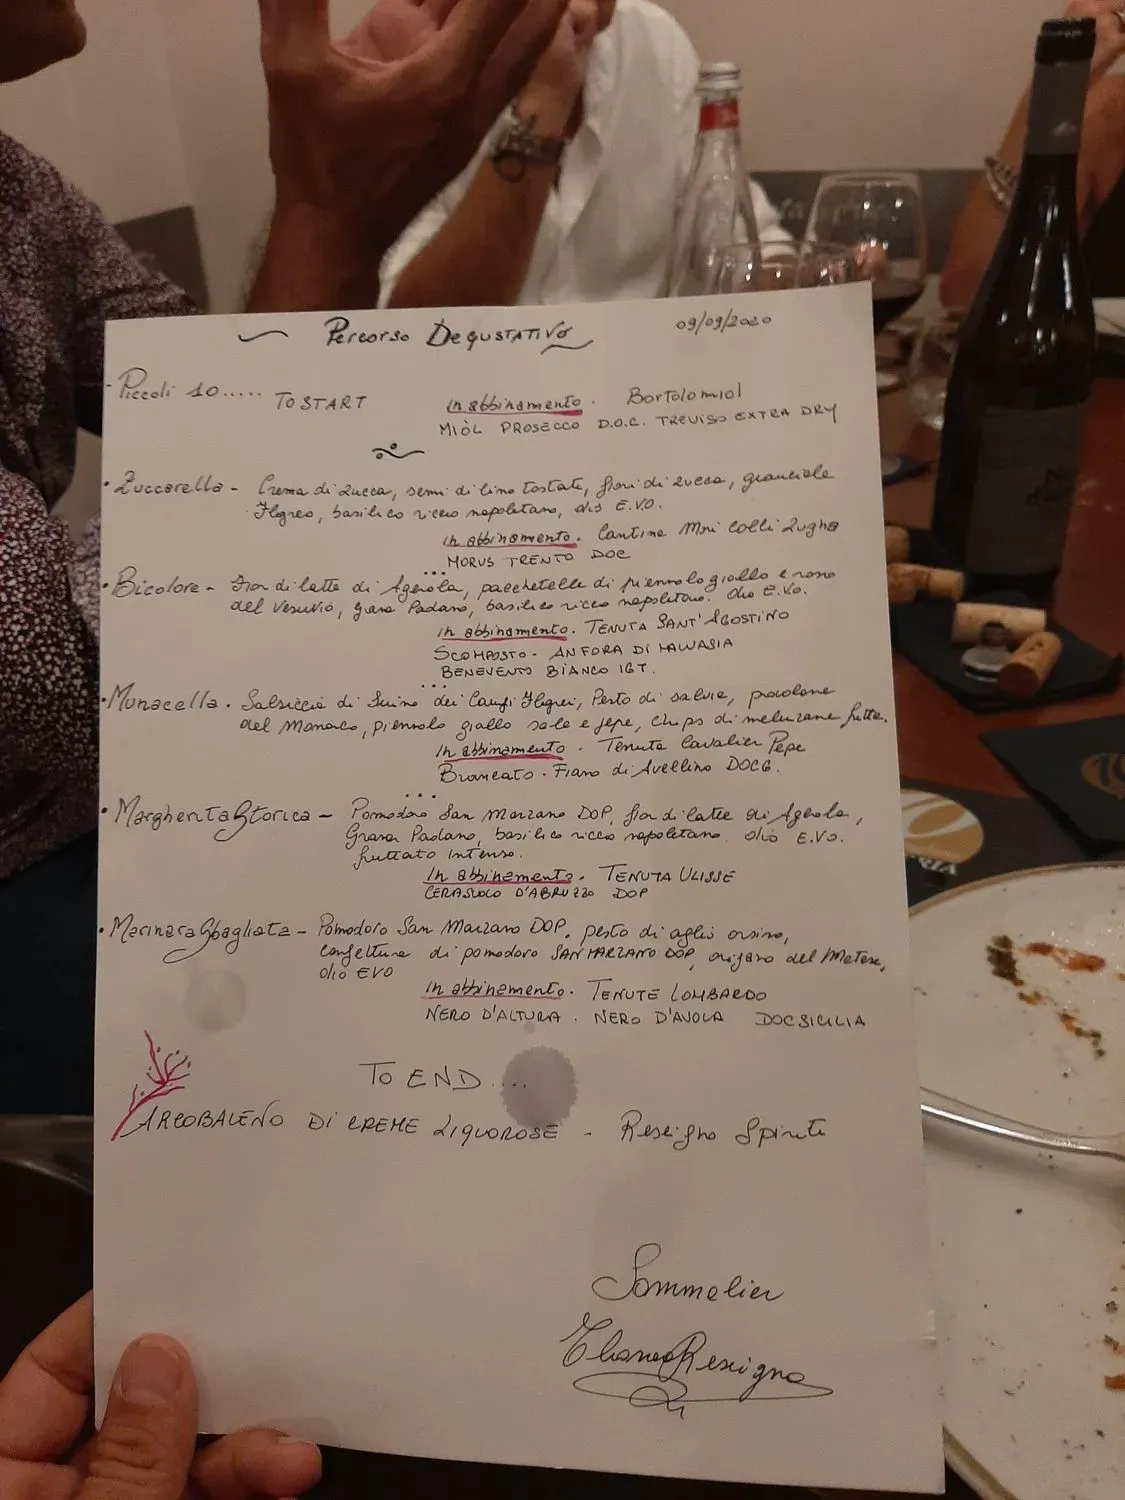 Percorso DEGUSTATIVO
09/09/2020
- Piccoli 10..... TO START
In abbinamento. Bortolomiol
MIÒL PROSECCO D.O.C. TREVISO EXTRA DRY
• Zuccarella - Crema di zucca, semi di lino tostate, fiori di zucca, guanciale
Flgreo, basilico riccio napoletano, olio E.VO.
In abbinamento. Cantina Mori Colli Zugna
MORUS TRENTO DOC
...
• Bicolore - Fior di latte di Agerola, pacchetelle di piennolo giallo e rosso
del Vesuvio, Grana Padano, basilico riccio napoletano. Olio E.VO.
In abbinamento. TENUTA SANT'AGOSTINO
SCOMPOSTO - ANFORA DI MALVASIA
BENEVENTO BIANCO IGT.
...
• Munacella. Salsiccia di Suino dei Campi Flegrei, Pesto di salvia, provolone
del Monaco, piennolo giallo sale e pepe, chips di melanzane fritte.
In abbinamento. Tenuta Cavalier Pepe
Brancato. Fiano di Avellino DOCG.
...
• Margherita Storica - Pomodoro San Marzano DOP, fior di latte di Agerola,
Grana Padano, basilico riccio napoletano. olio E.VO.
fruttato intenso.
In abbinamento. TENUTA ULISSE
CERASUOLO D'ABRUZZO DOP
• Marinara Sbagliata - Pomodoro San Marzano DOP, pesto di aglio orsino,
confettura di pomodoro SAN MARZANO DOP, origano del Matese,
olio EVO
In abbinamento. TENUTE LOMBARDO
NERO D'ALTURA. NERO D'AVOLA DOC SICILIA
TO END....
ARCOBALENO DI CREME LIQUOROSE - Rescigno Spirits
Sommelier
Rescigno